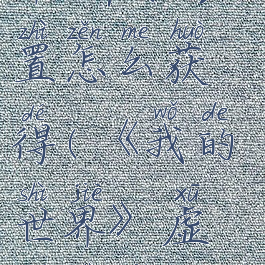 zhì zěn me huò
置怎么获
dé wǒ de
得(《我的
shì jiè xū
世界》虚